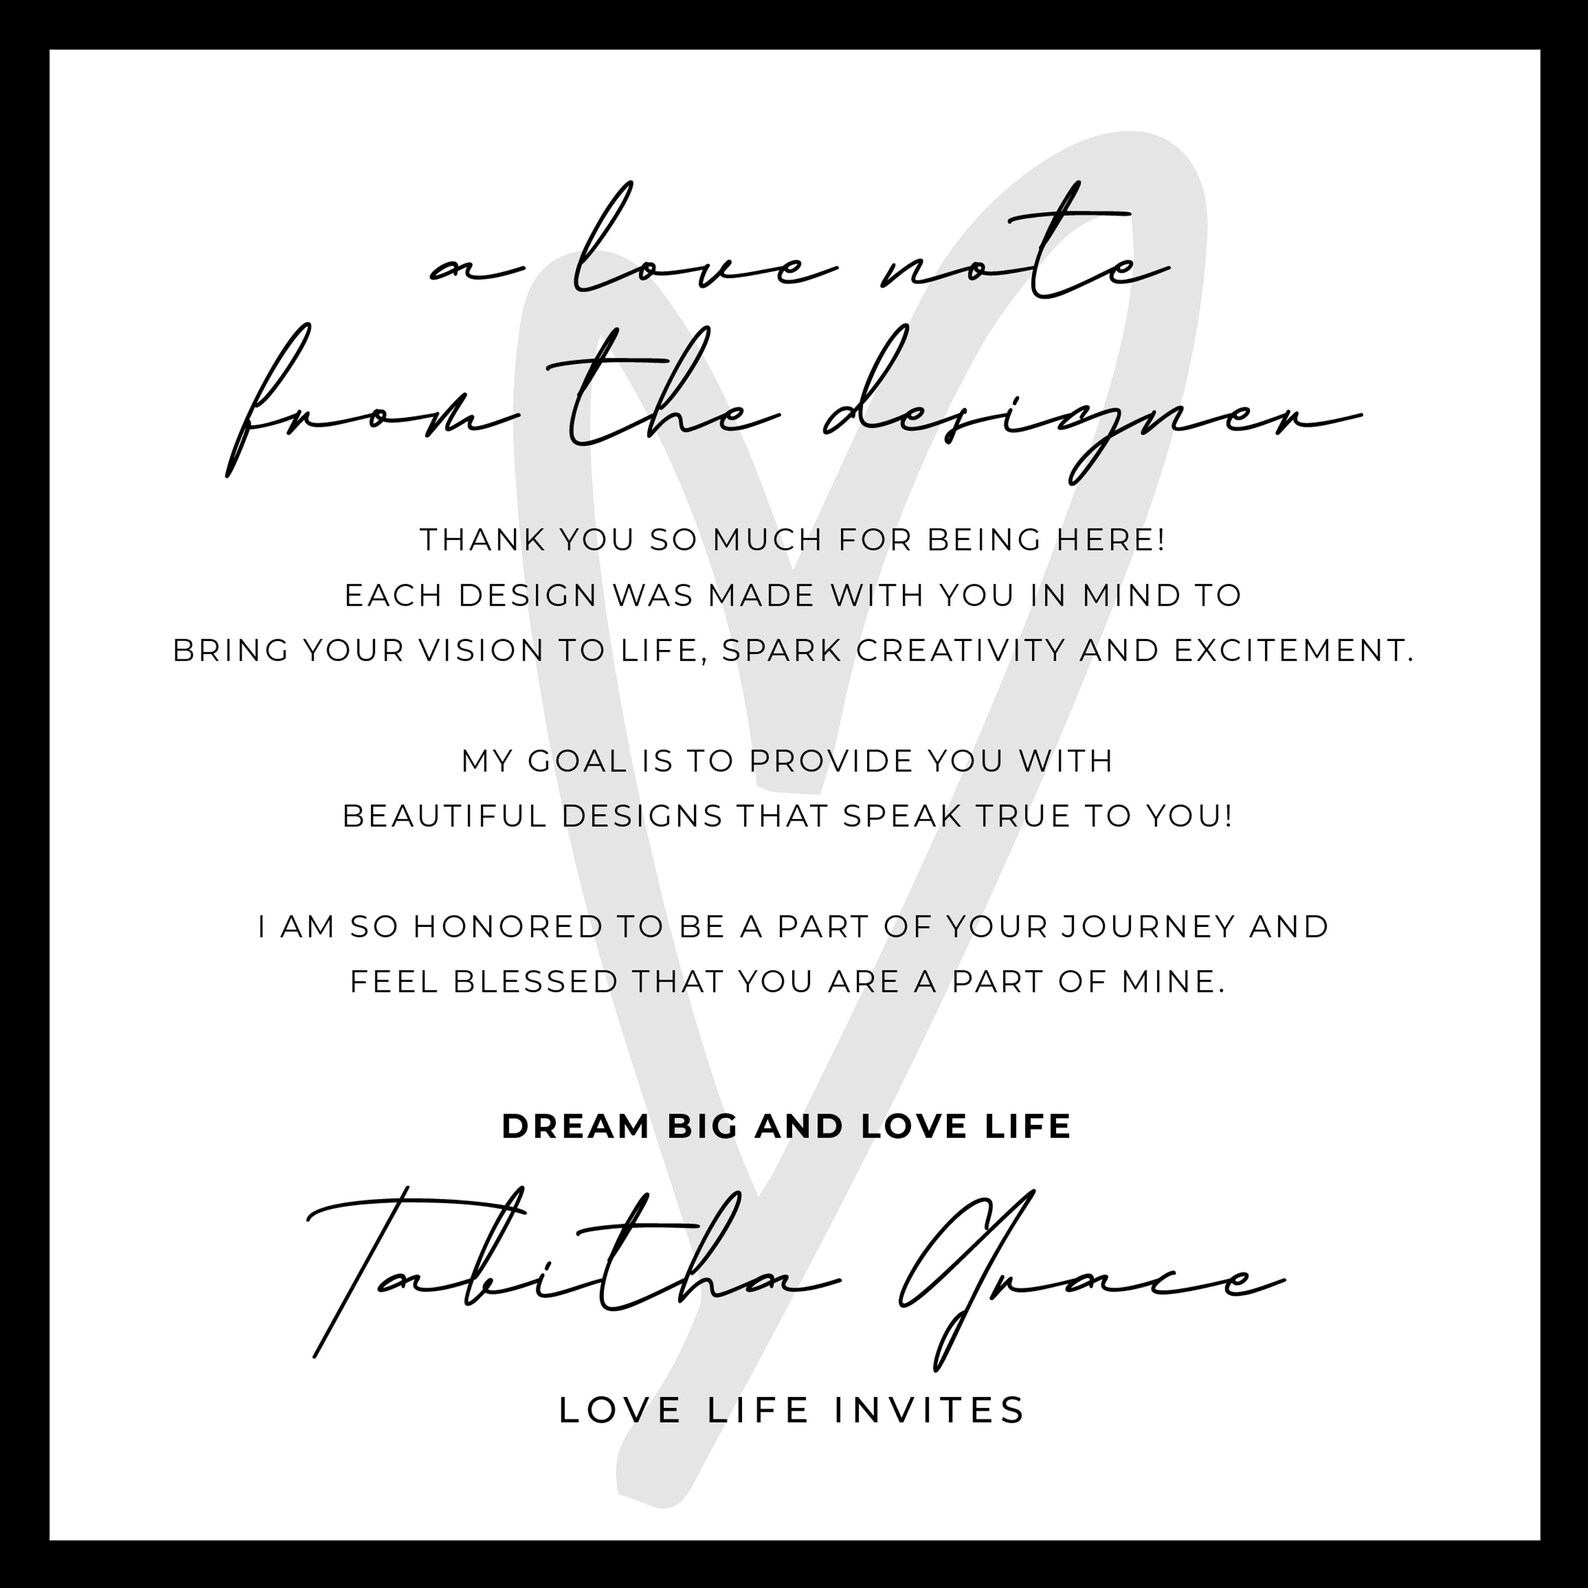 a love note
from the designer
THANK YOU SO MUCH FOR BEING HERE!
EACH DESIGN WAS MADE WITH YOU IN MIND TO
BRING YOUR VISION TO LIFE, SPARK CREATIVITY AND EXCITEMENT.
MY GOAL IS TO PROVIDE YOU WITH
BEAUTIFUL DESIGNS THAT SPEAK TRUE TO YOU!
I AM SO HONORED TO BE A PART OF YOUR JOURNEY AND
FEEL BLESSED THAT YOU ARE A PART OF MINE.
DREAM BIG AND LOVE LIFE
Tabitha Grace
LOVE LIFE INVITES